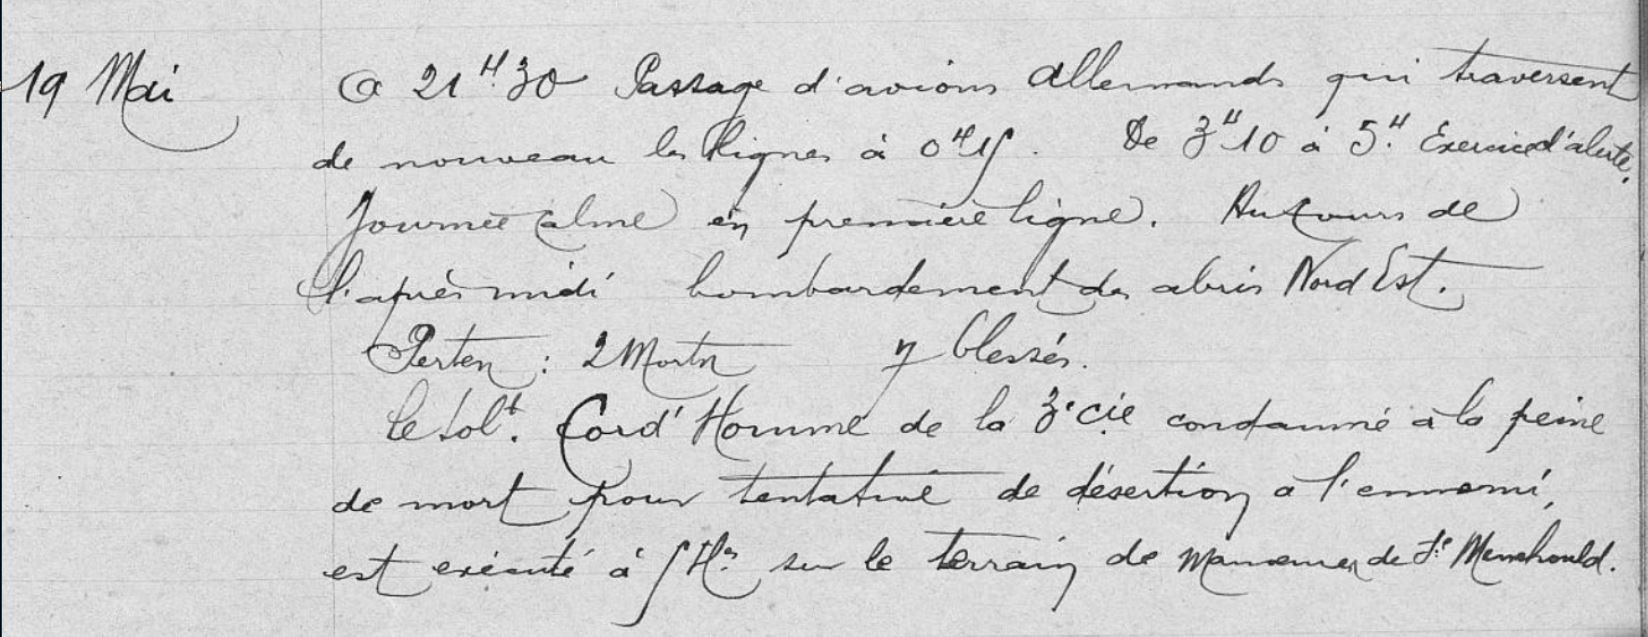 19 Mai A 21H.30 Passage d'avions Allemands qui traversent
de nouveau les lignes à 0H15. De 3H10 à 5H. Exercice d'alerte.
Journée calme en première ligne. Au cours de
l'après midi bombardement des abris Nord Est.
Pertes : 2 Morts 7 blessés.
Le solt. Cord'Homme de la 3e Cie condamné à la peine
de mort pour tentative de désertion à l'ennemi,
est exécuté à 5 Hes sur le terrain de manœuvres de Ste Menehould.